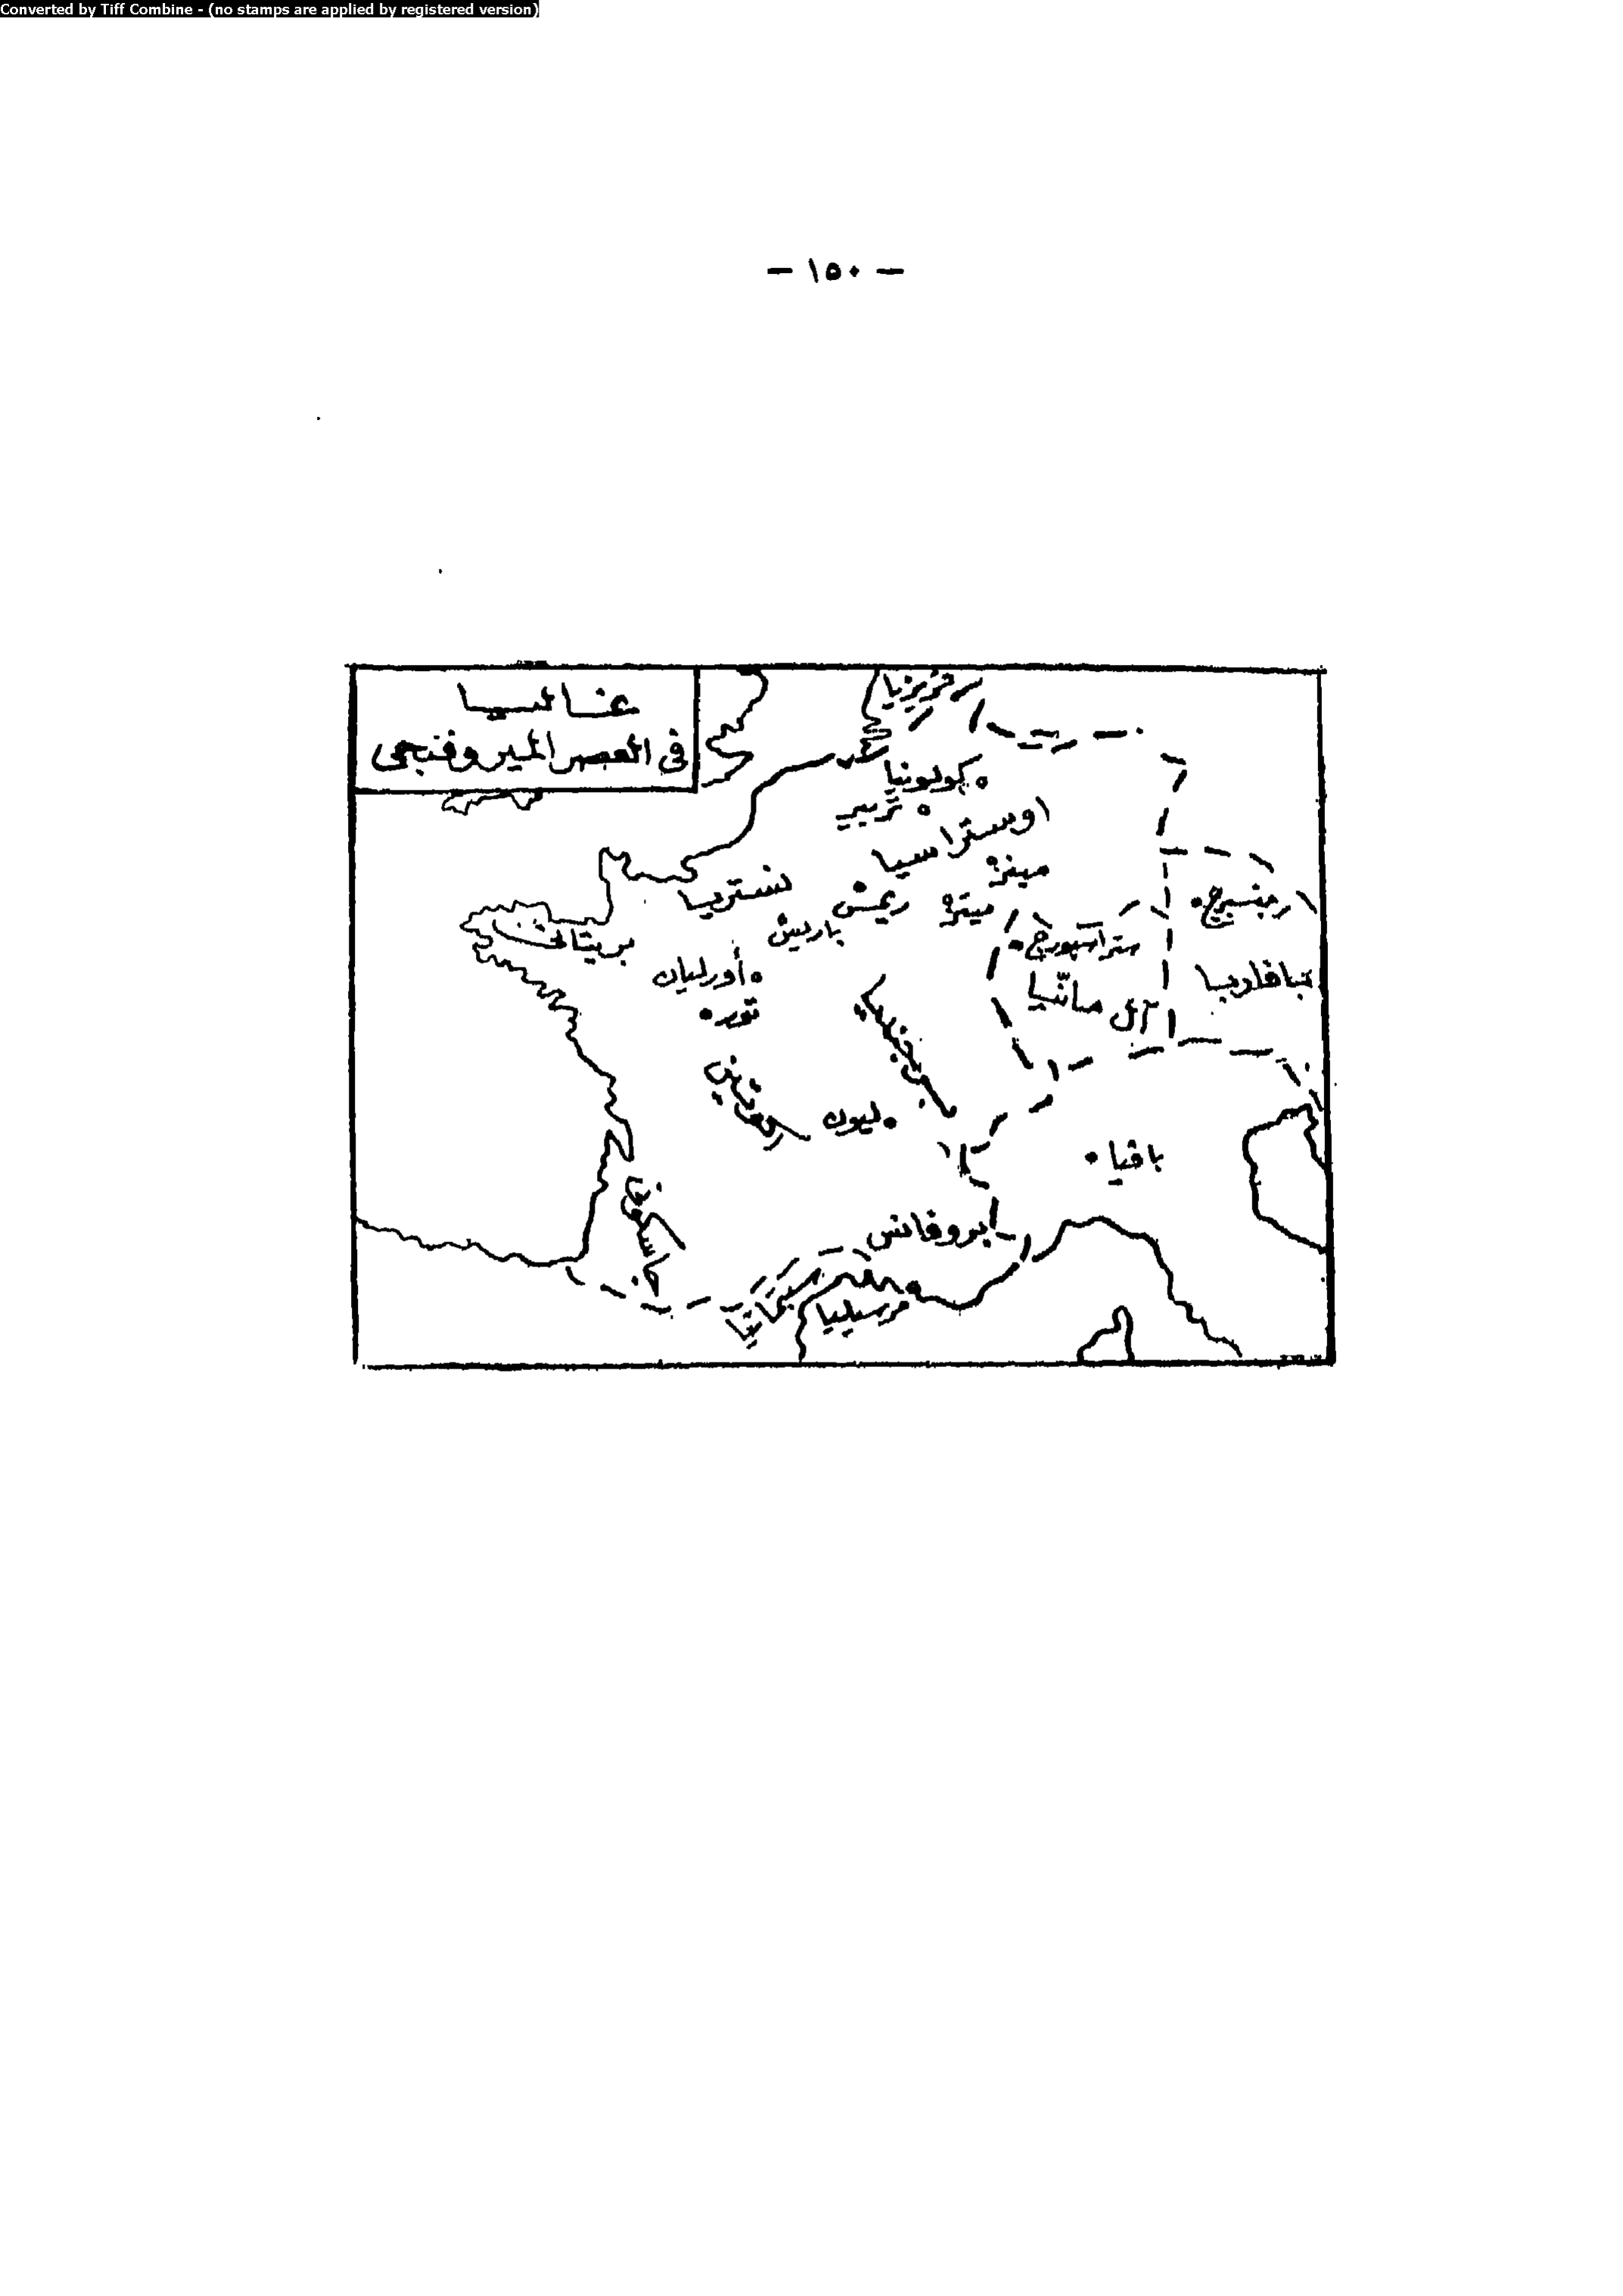 Converted by Tiff Combine - (no stamps are applied by registered version)
— ١٥٠ —
غاليا
فى العصر الميروفنجى
فريزيا
كولونيا
تريير
اوستراسيا
مينز
نستريا
ريمس
ميتز
باريس
ستراسبورج
بريتانى
أورليان
تور
آل مانيا
بافاريا
ليون
بافيا
بروفانس
مرسيليا